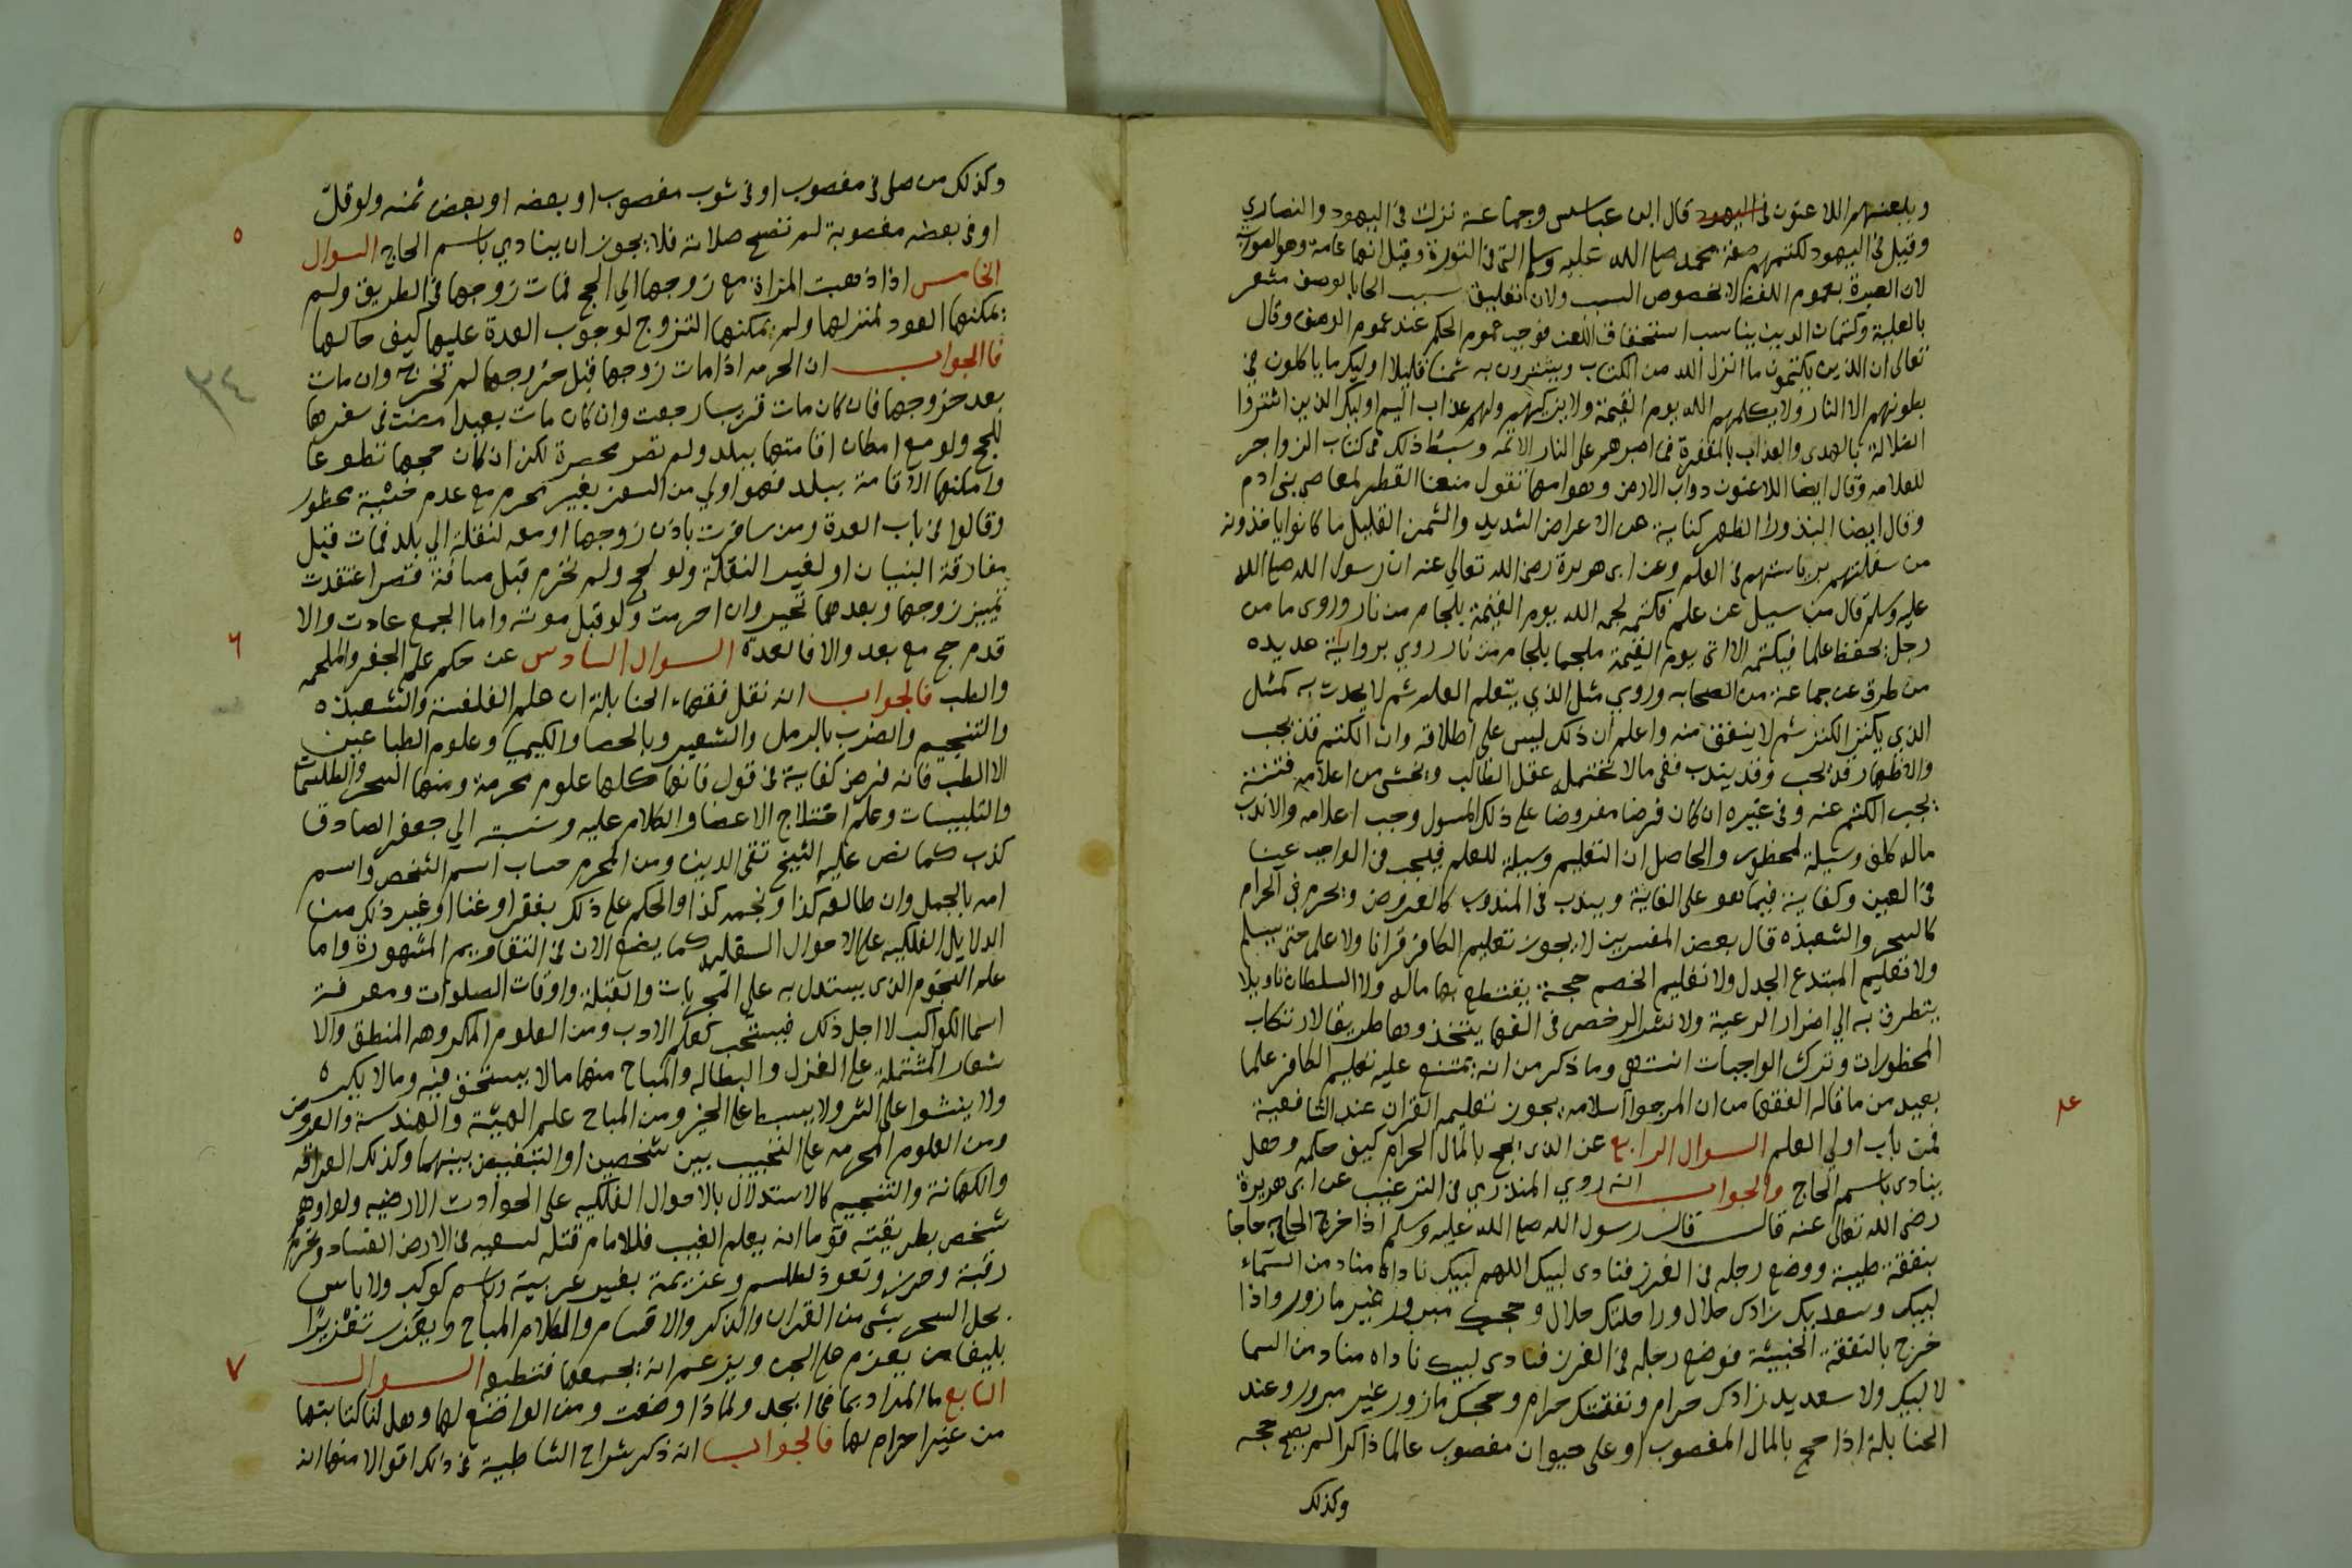 ويلعنهم اللاعنون في اليهود قال ابن عباس وجماعة نزلت في اليهود والنصاري
وقيل في اليهود لكتمهم صفة محمد صلى الله عليه وسلم التي في التورة وقيل انها عامة وهو الصواب
لان العبرة بعموم اللفظ لا بخصوص السبب ولان تعليق الحكم بالوصف مشعر
بالعلية وكتمان الدين يناسب استحقاق اللعن فوجب عموم الحكم عند عموم الوصف وقال
تعالى ان الذين يكتمون ما انزل الله من الكتاب ويشترون به ثمنا قليلا اوليك ما ياكلون في
بطونهم الا النار ولا يكلمهم الله يوم القيمة ولا يزكيهم ولهم عذاب اليم اوليك الذين اشتروا
الضلالة بالهدى والعذاب بالمغفرة فما اصبرهم على النار الاثمه وبسط ذلك في كتاب الزواجر
للعلامه وقال ايضا اللاعنون دواب الارض وهوامها تقول منعنا القطر لمعاصي بني ادم
وقال ايضا النبذ ورا الظهر كناية عن الاعراض الشديد والثمن القليل ما كانوا ياخذونه
من سفلتهم برياستهم في العلم وعن ابى هريرة رضى الله تعالي عنه ان رسول الله صلى الله
عليه وسلم قال من سيل عن علم فكتمه لجمه الله يوم القيمة بلجام من نار وروى ما من
رجل يحفظ علما فيكتمه الا اتى يوم القيمة ملجما بلجام من نار روي برواية عديده
من طرق عن جماعة من الصحابه وروي مثل الذي يتعلم العلم ثم لا يحدث به كمثل
الذي يكنز الكنز ثم لا ينفق منه واعلم ان ذلك ليس على اطلاقه وان الكتم قد يجب
والاظهار قد يجب وقد يندب ففي مالا تحتمله عقل الطالب ويخشى من اعلامه فتنة
يجب الكتم عنه وفي غيره ان كان فرضا مفروضا على ذلك المسول وجب اعلامه والا ندب
وسيلة لمحظور والحاصل ان التعليم وسيلة للعلم فيجب في الواجب عينا
في العين وكفاية فيما هو على الكفاية ويندب في المندوب كالعروض ويحرم في الحرام
كالسحر والشعبذه قال بعض المفسرين لا يجوز تعليم الكافر قرانا ولا علما حتى يسلم
ولا تعليم المبتدع الجدل ولا تعليم الخصم حجة يقتطع بها ماله ولا السلطان تاويلا
يتطرق به الي اضرار الرعية ولا نشر الرخص في السفها يتخذونها طريقا لارتكاب
المحظورات وترك الواجبات انتهى وما ذكر من انه يمتنع عليه تعليم الكافر علما
بعيد من ما قاله الفقها من ان المرجوا اسلامه يجوز تعليمه القران عند الشافعية
فمن باب اولي العلم السوال الرابع عن الذى يحج بالمال الحرام كيف حكمه وهل
ينادى باسم الحاج والجواب انه روي المنذري في الترغيب عن ابى هريرة
رضى الله تعالى عنه قال قال رسول الله صلى الله عليه وسلم اذا خرج الحاج حاجا
بنفقة طيبة ووضع رجله في الغرز فنادى لبيك اللهم لبيك ناداه مناد من السماء
لبيك وسعديك زادك حلال وراحلتك حلال وحجك مبرور غير مازور واذا
خرج بالنفقة الخبيثة فوضع رجله في الغرز فنادى لبيك ناداه مناد من السما
لا لبيك ولا سعديك زادك حرام ونفقتك حرام وحجك مازور غير مبرور وعند
الحنابلة اذا حج بالمال المغصوب او على حيوان مغصوب عالما ذاكرا لم يصح حجه
وكذلك
وكذلك من صلى في مغصوب او في ثوب مغصوب او بعضه او بعض ثمنه ولو قل
او في بعضه مغصوبة لم تصح صلاته فلا يجوز ان ينادي باسم الحاج السوال
٥
الخامس اذا ذهبت المراة مع زوجها الي الحج فمات زوجها في الطريق ولم
يمكنها العود لمنزلها ولم يمكنها التزوج لوجوب العدة عليها كيف حالها
فالجواب ان الحرمه اذا مات زوجها قبل خروجها لم تخرج وان مات
٣٤
بعد خروجها فان كان مات قريبا رجعت وان كان مات بعيدا مضت في سفرها
للحج ولو مع امكان اقامتها ببلد ولم تصر محصرة لكن ان كان حجها تطوعا
وامكنها الاقامة ببلد فهو اولي من السفر بغير محرم مع عدم خشية محظور
وقالوا في باب العدة ومن سافرت باذن زوجها او معه لنقلة الي بلد فمات قبل
مفارقة البنيان او لغير النقلة ولو لحج ولم تحرم قبل مسافة قصر اعتدت
زوجها وبعدهما تخير وان احرمت ولو قبل موته واما الجمع عادت والا
قدم حج مع بعد والا فالعدة السوال السادس عن حكم علم الجفر والملحمه
٦
والطب فالجواب انه نقل فقهاء الحنابلة ان علم الفلسفة والشعبذه
والتنجيم والضرب بالرمل والشعير وبالحصا والكيميا وعلوم الطبايعيين
الا الطب فانه فرض كفاية في قول فانها كلها علوم محرمة ومنها السحر والطلسمات
والتلبيسات وعلم اختلاج الاعضا والكلام عليه ونسبته الي جعفر الصادق
كذب كما نص عليه الشيخ تقى الدين ومن المحرم حساب اسم الشخص واسم
امه بالجمل وان طالعه كذا ونجمه كذا والحكم على ذلك بفقر او غنا او غير ذلك من
الدلايل الفلكيه على الاحوال السفليه كما يصنع الان في التقاويم المشهورة واما
علم النجوم الذى يستدل به على الجهات والقبلة واوقات الصلوات ومعرفة
اسما الكواكب لا اجل ذلك فيستحب كعلم الادب ومن العلوم المكروهه المنطق والا
شعار المشتملة على الغزل والبطاله والمباح منها مالا يستخف فيه ومالا يكره
ولا ينشوا على الشر ولا يبسط على الخير ومن المباح علم الهيئة والهندسة والعروض
ومن العلوم المحرمه على التحبيب بين شخصين او التبغيض بينهما وكذلك العرافه
والكهانة والتنجيم كالاستدلال بالاحوال الفلكيه على الحوادث الارضيه ولو اوهم
شخص بطريقته قوما انه يعلم الغيب فللامام قتله لسعيه في الارض الفساد وتحرم
رقية وحرز وتعوذ بطلسم وعزيمة بغير عربية وباسم كوكب ولا باس
بحل السحر بشى من القران والذكر والاقسام والكلام المباح ويعزر تعزيرا
بليغا من يعزم على الجن ويزعم انه يجمعها فتطيعه السوال
٧
السابع ما المراد بما في ابجد ولماذا وضعت ومن الواضع لها وهل لنا كتابتها
من غير احرام لها فالجواب انه ذكر شراح الشاطبية في ذلك اقوالا منها انه